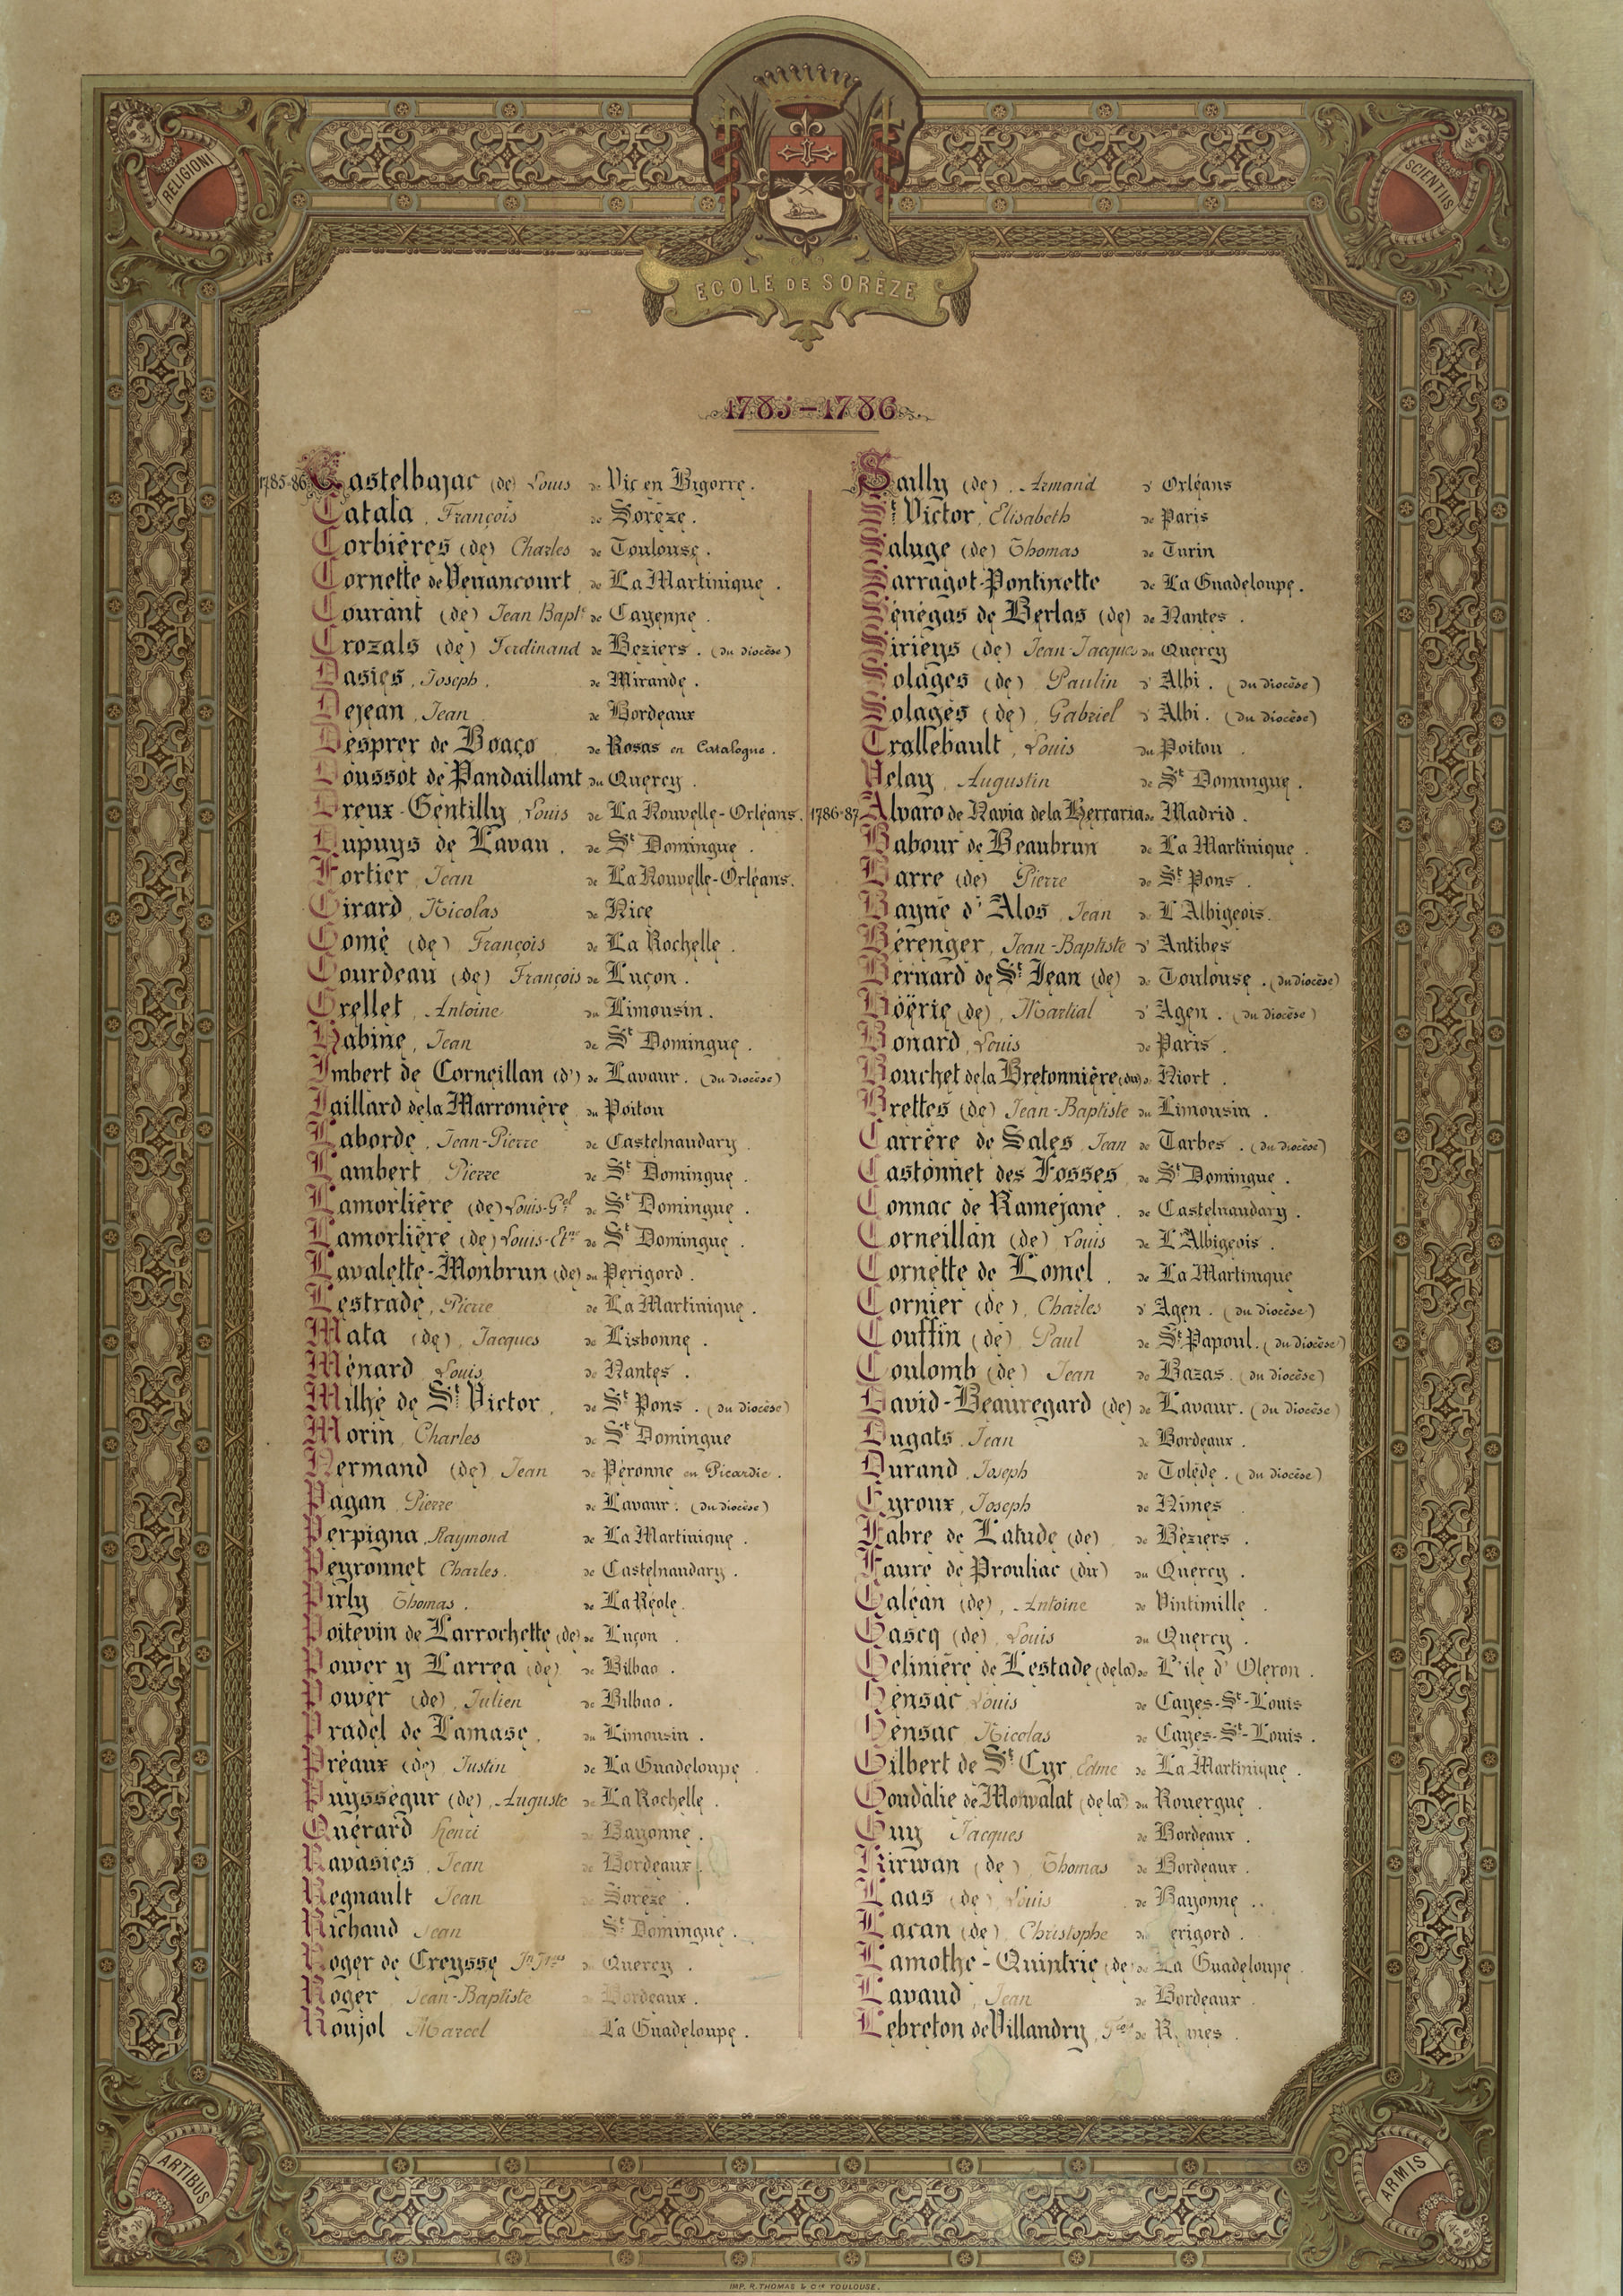 RELIGIONI
SCIENTIIS
ECOLE DE SORÈZE
1785-1786
1785-86 Castelbajac (de) Louis de Vic en Bigorre.
Catala, François de Sorèze.
Corbières (de) Charles de Toulouse.
Cornette de Venancourt, de La Martinique.
Courant (de) Jean Bapt. de Cayenne.
Crozals (de) Ferdinand de Béziers. (du diocèse)
Dasies, Joseph, de Mirande.
Dejean, Jean de Bordeaux
Desprer de Boaço de Rosas en Catalogne.
Doussot de Pandaillant du Quercy.
Dreux-Gentilly, Louis de La Nouvelle-Orléans.
Dupuys de Lavau. de St Domingue.
Fortier, Jean de La Nouvelle-Orléans.
Girard, Nicolas de Nice
Gomé (de) François de La Rochelle.
Gourdeau (de) François de Luçon.
Grellet, Antoine du Limousin.
Habine, Jean de St Domingue.
Imbert de Corneillan (d') de Lavaur. (du diocèse)
Jaillard de la Marronière du Poitou
Laborde, Jean-Pierre de Castelnaudary
Lambert, Pierre de St Domingue.
Lamorlière (de) Louis-Gel de St Domingue.
Lamorlière (de) Louis-Etne de St Domingue.
Lavalette-Monbrun (de) du Périgord.
Lestrade, Pierre de La Martinique.
Mata (de), Jacques de Lisbonne.
Ménard, Louis de Nantes.
Milhé de St Victor, de St Pons. (du diocèse)
Morin, Charles de St Domingue
Nermand (de), Jean de Péronne en Picardie.
Pagan, Pierre de Lavaur. (du diocèse)
Perpigna, Raymond de La Martinique.
Peyronnet Charles. de Castelnaudary.
Pirly Thomas. de La Réole.
Poitevin de Larrochette (de) de Luçon.
Power y Larrea (de) de Bilbao.
Power (de), Julien de Bilbao.
Pradel de Lamase, du Limousin.
Préaux (de) Justin de La Guadeloupe
Puysségur (de), Auguste de La Rochelle.
Quérard Henri de Bayonne.
Ravasies, Jean de Bordeaux.
Regnault Jean de Sorèze.
Richaud Jean St Domingue.
Roger de Creysse Jn Jques du Quercy.
Roger, Jean-Baptiste de Bordeaux.
Roujol Marcel La Guadeloupe.
Sailly (de). Armand d' Orléans
St Victor, Elisabeth de Paris
Saluge (de) Thomas de Turin
Sarragot-Pontinette de La Guadeloupe.
Sénégas de Berlas (de) de Nantes.
Siriéys (de) Jean-Jacques du Quercy
Solages (de) Paulin d' Albi. (du diocèse)
Solages (de), Gabriel d' Albi. (du diocèse)
Trallebault, Louis du Poitou.
Velay, Augustin de St Domingue.
1786-87 Alvaro de Navia de la Herraria de Madrid.
Babour de Beaubrun de La Martinique.
Barre (de) Pierre de St Pons.
Bayne d'Alos, Jean de L'Albigeois.
Bérenger, Jean-Baptiste d' Antibes
Bernard de St Jean (de) de Toulouse. (du diocèse)
Böërie (de), Martial d' Agen. (du diocèse)
Bonard, Louis de Paris.
Bouchet de la Bretonnière (du) de Niort.
Brettes (de) Jean-Baptiste du Limousin.
Carrère de Sales, Jean de Tarbes. (du diocèse)
Castonnet des Fosses, de St Domingue.
Connac de Raméjane. de Castelnaudary.
Corneillan (de) Louis de L'Albigeois.
Cornette de Lomel. de La Martinique
Cornier (de), Charles d' Agen. (du diocèse)
Couffin (de) Paul de St Papoul. (du diocèse)
Coulomb (de) Jean de Bazas. (du diocèse)
David-Beauregard (de) de Lavaur. (du diocèse)
Dugats, Jean de Bordeaux.
Durand, Joseph de Tolède. (du diocèse)
Eyroux, Joseph de Nimes
Fabre de Latude (de) de Béziers.
Faure de Prouliac (du) du Quercy.
Galéan (de), Antoine de Vintimille.
Gascq (de), Louis du Quercy.
Gelinière de Lestade (de la) de L'île d' Oleron.
Gensac Louis de Cayes-St-Louis
Gensac Nicolas de Cayes-St-Louis.
Gilbert de St Cyr, Edme de La Martinique.
Goudalie de Mowalat (de la) du Rouergue.
Guy Jacques de Bordeaux.
Kirwan (de), Thomas de Bordeaux.
Laas (de) Louis de Bayonne..
Lacan (de), Christophe erigord.
Lamothe-Quintrie (de) de La Guadeloupe.
Lavaud, Jean de Bordeaux
Lebreton de Villandry, de
ARTIBUS
ARMIS
IMP. R. THOMAS & Cie TOULOUSE.